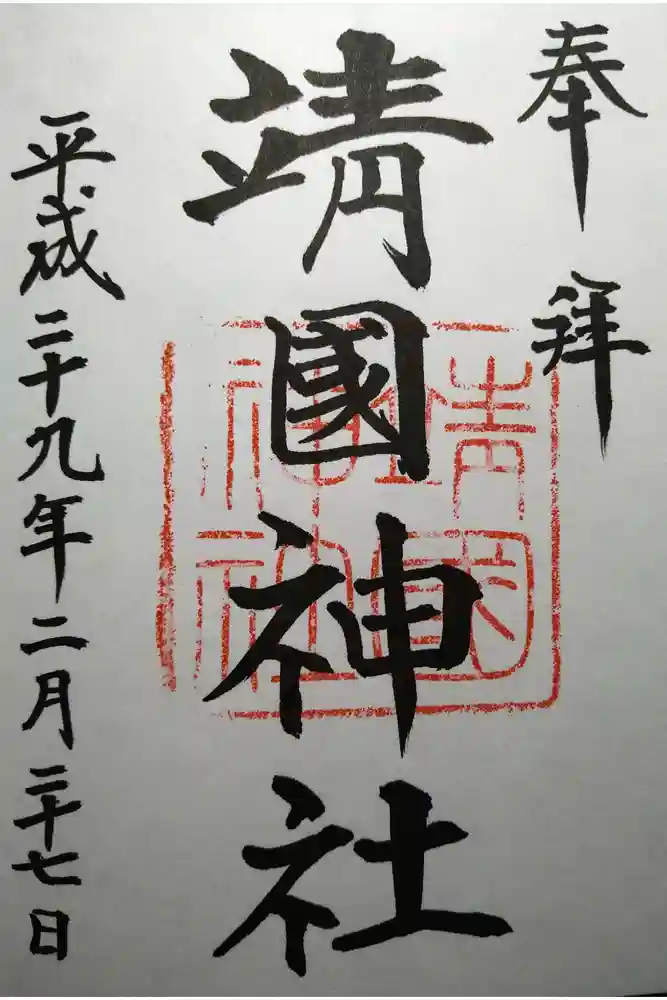 奉拝
靖國神社
靖國神社
平成二十九年二月二十七日